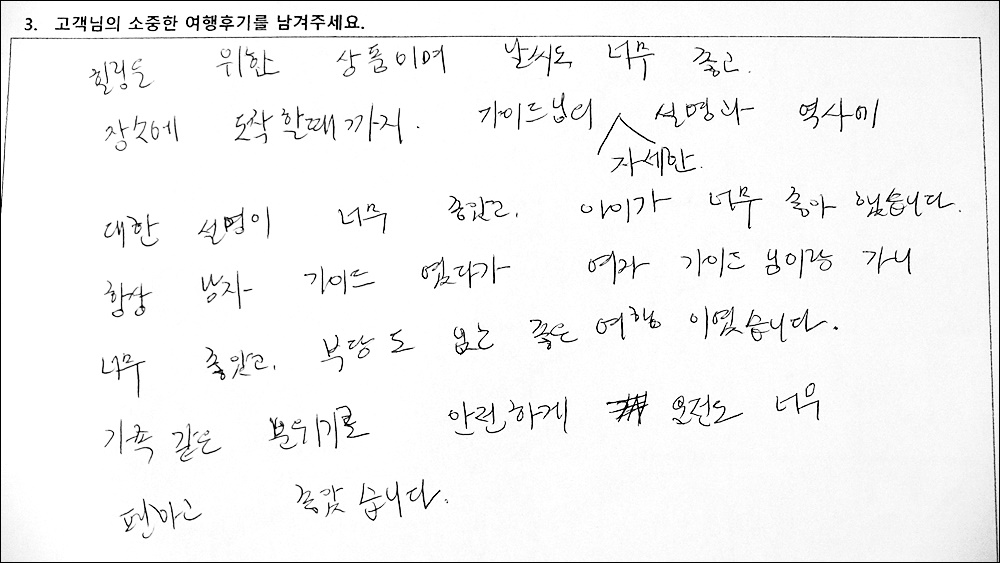 3. 고객님의 소중한 여행후기를 남겨주세요.
힐링을 위한 상품이며 날씨도 너무 좋고.
장소에 도착할때까지. 가이드님의 설명과 역사에
자세한.
대한 설명이 너무 좋았고. 아이가 너무 좋아 했습니다.
항상 남자 가이드 였다가 여자 가이드 님이랑 가니
너무 좋았고. 부담도 없는 좋은 여행 이였습니다.
가족 같은 분위기로 안전하게 운전도 너무
편하고 좋았습니다.